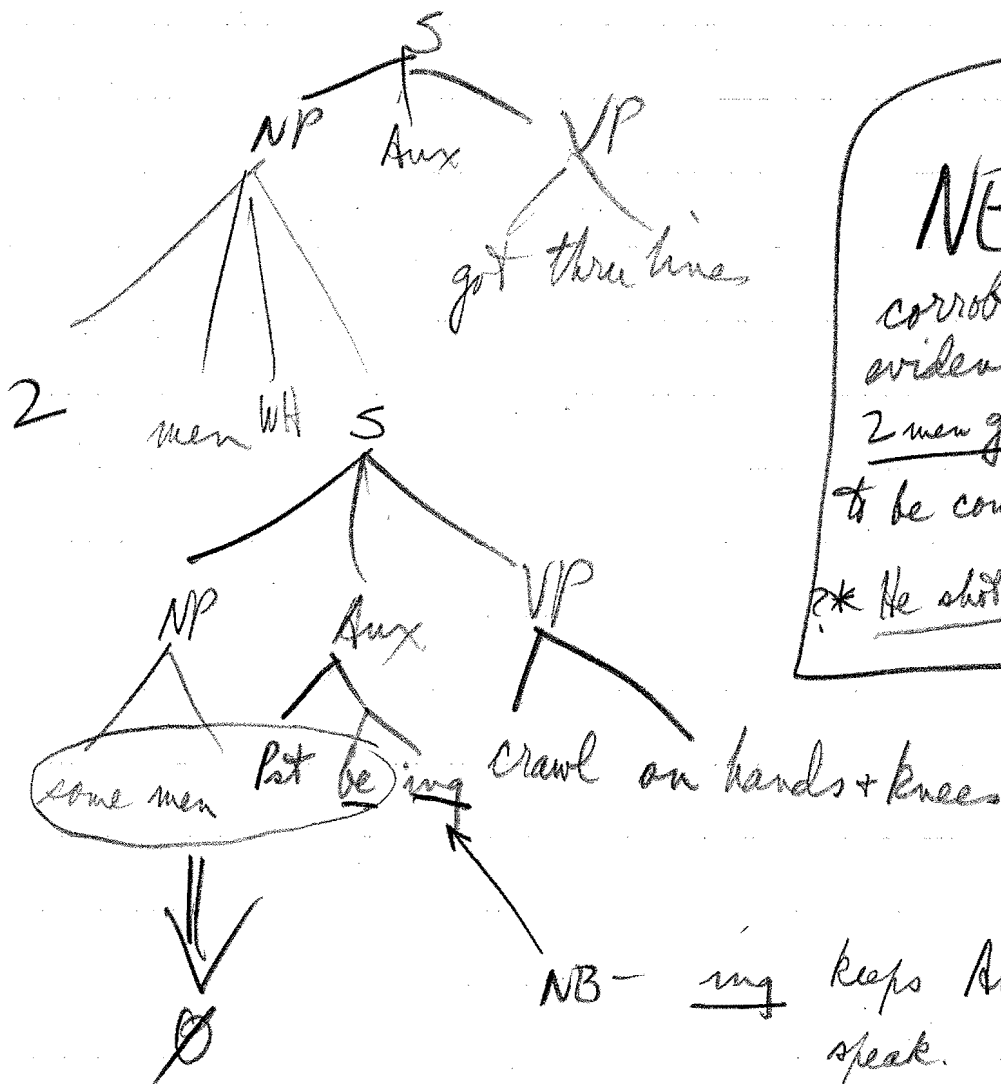 S
NP Aux VP
got thru lines
2 men WH S
NP Aux VP
some men Pst be ing crawl on hands + knees
Ø
NB – ing keeps
speak.
NE
corrob
eviden
2 men g
to be con
?* He shot